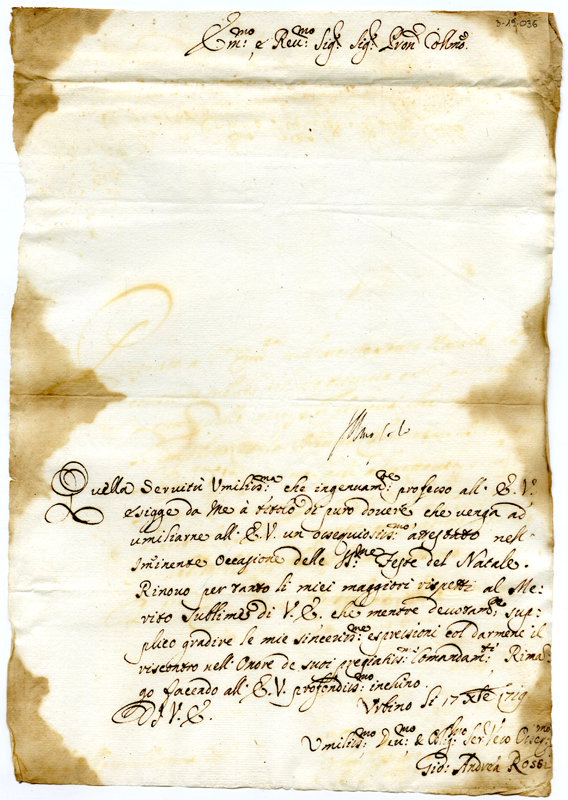 3-19-036
Em:mo e Rev:mo Sig:r Sig:r Pron Colmo:
Quella Servitù Umiliss:ma che ingenuam:te professo all' E. V.
esigge da Me à titolo di puro dovere che venga ad
umiliarne all' E. V. un ossequiosiss:mo attestato nell'
Iminente Occasione delle SS:me Feste del Natale.
Rinovo per tanto li miei maggiori rispetti al Me-
rito Sublime di V. E. che mentre devotam:te sup-
plico gradire le mie sinceriss:me espressioni col darmene il
riscontro nell' Onore de suoi pregiatiss:mi Comandam:ti Rima-
go facendo all' E. V. profondiss:mo inchino
Urbino li 17 Xbre 1719
Di V. E.
Umiliss:mo Dev:mo & Obblig:mo Ser: Vero Osser:mo
Gio: Andrea Rossi